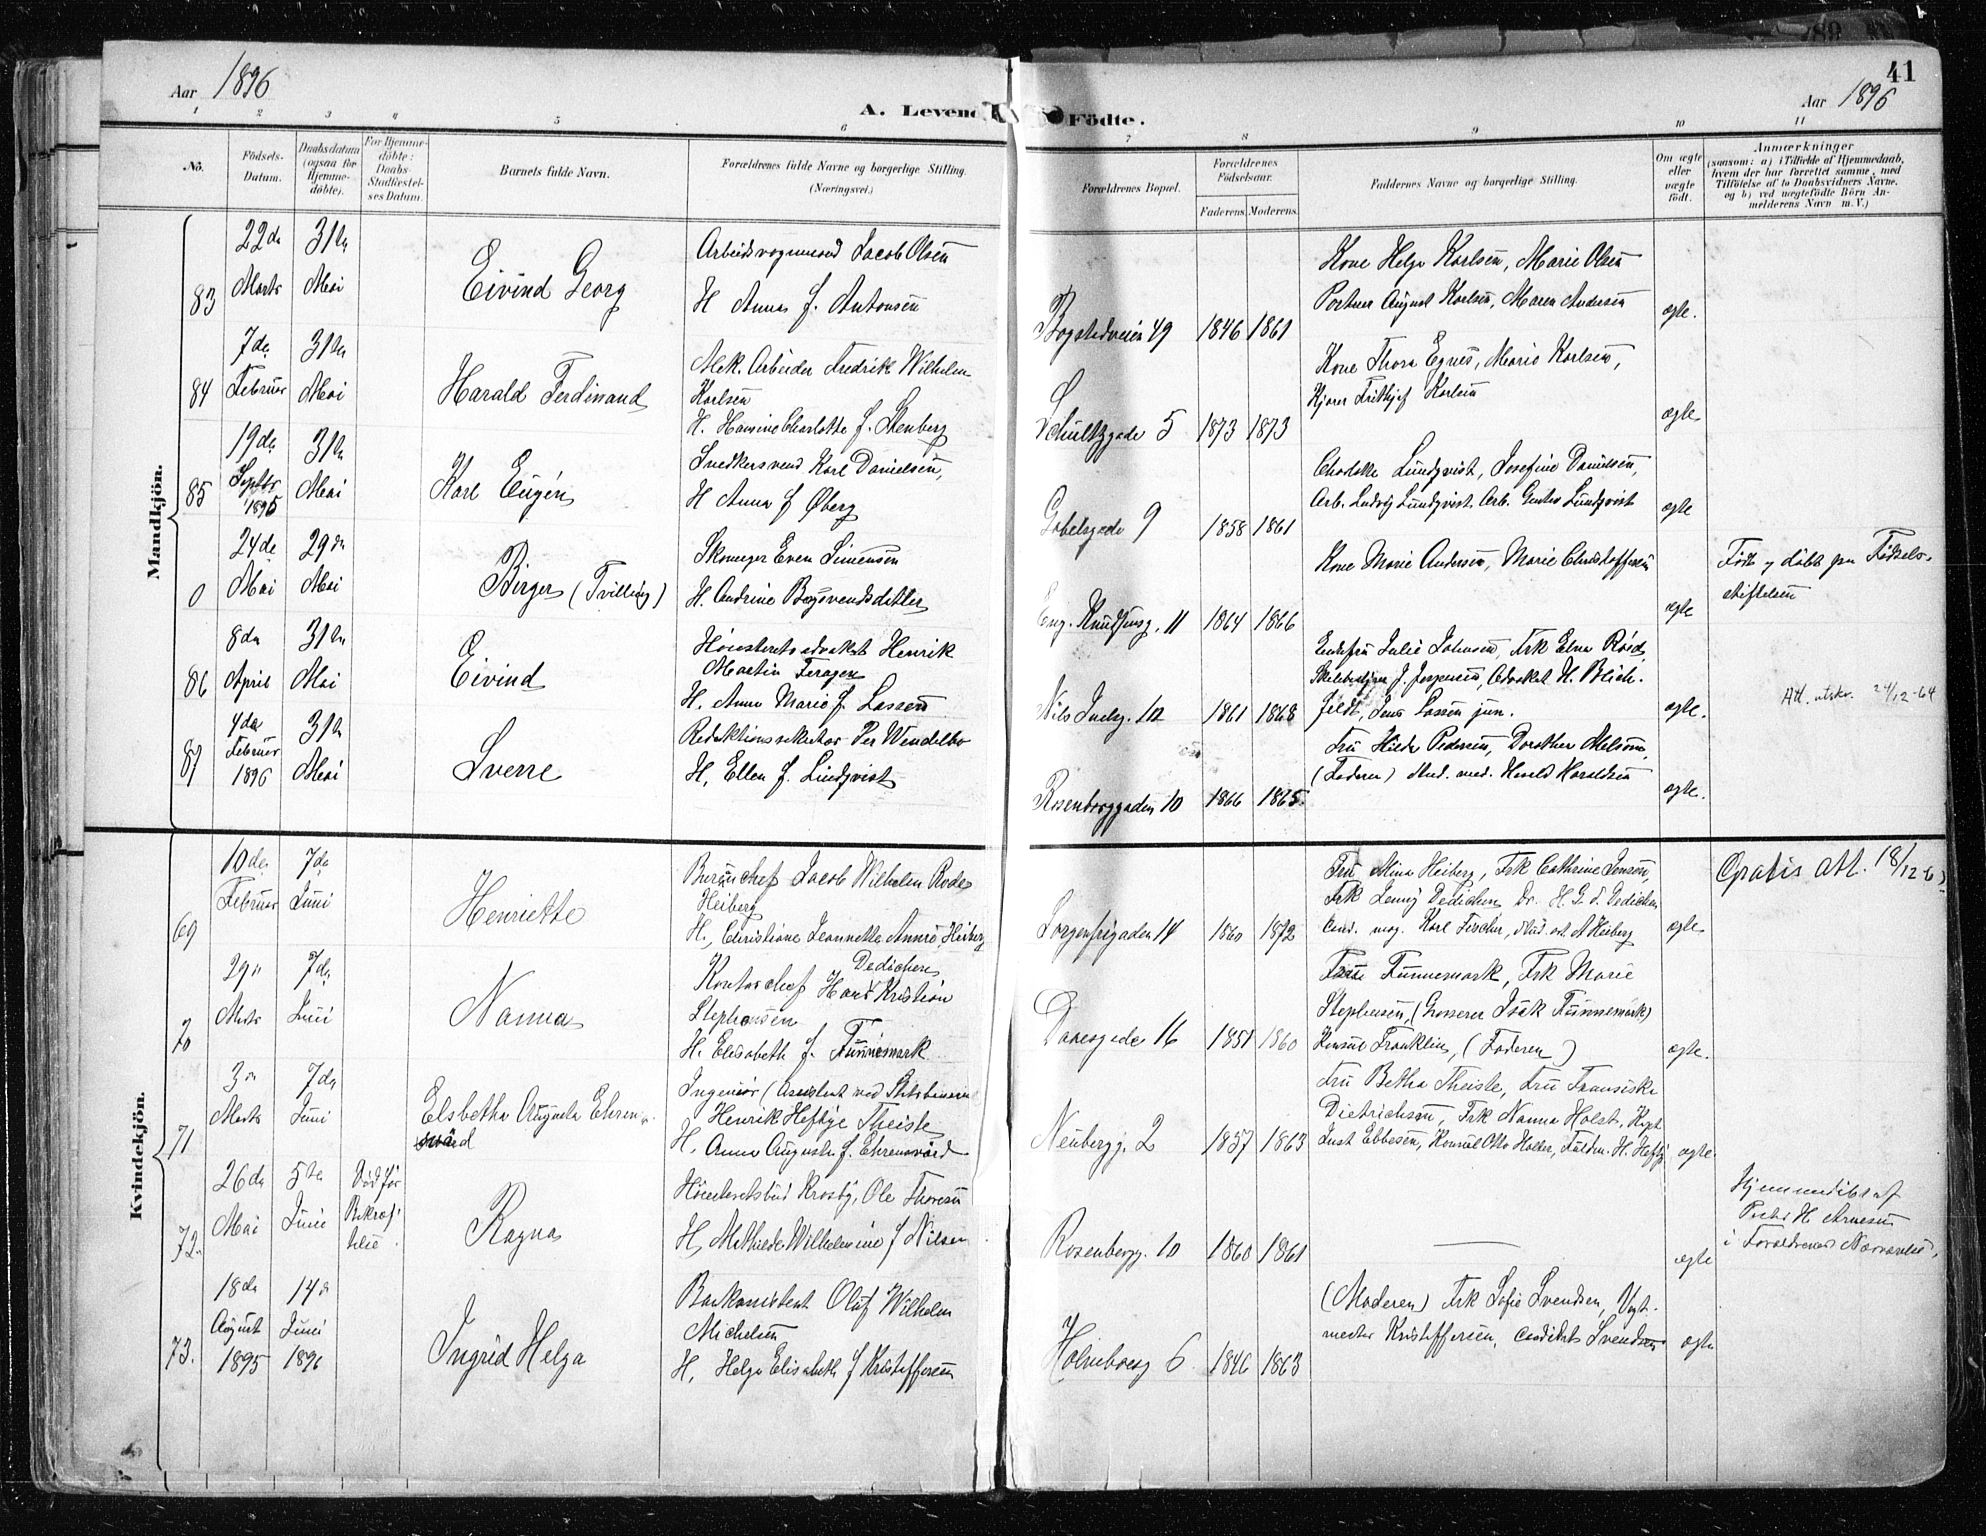 Aar 1896
A. Levende Födte.
41
Aar 1896
1 2 3 4 5 6 7 8 9 10 11
No.
Födsels-Datum.
Daabsdatum (ogsaa for Hjemme-döbte).
For Hjemme-döbte: Daabs-Stadfæstel-ses Datum.
Barnets fulde Navn.
Forældrenes fulde Navne og borgerlige Stilling. (Næringsvei.)
Forældrenes Bopæl.
Forældrenes Födselsaar.
Faderens. Moderens.
Faddernes Navne og borgerlige Stilling.
Om ægte eller uægte födt.
Anmærkninger
(saasom: a) i Tilfælde af Hjemmedaab,
hvem der har forrettet samme, med
Tilföielse af to Daabsvidners Navne,
og b) ved uægtefödte Börn An-
melderens Navn m. V.)
Mandkjön.
83
22de Marts
31te Mai
Eivind Georg
Arbeidsvognmand Jacob Olsen
H Anna f. Antonsen
Bogstadveien 49
1846 1861
Kone Helga Karlsen, Marie Olsen
Portner August Karlsen, Maren Andersen
ægte.
84
7de Februar
31te Mai
Harald Ferdinand
Mek. Arbeider Fredrik Wilhelm
Karlsen
H. Hansine Charlotte f. Stenberg
Schultzgade 5
1873 1873
Kone Thora Egnes, Marie Karlsen,
Kjører Frithjof Karlsen
ægte
85
19de Septbr 1895
31te Mai
Karl Eugén
Snedkersvend Karl Danielsen,
H Anna f Øberg
Gabelsgade 9
1858 1861
Charlotte Lundqvist, Josefine Danielsen,
Arb. Ludvig Lundqvist Arb. Gustav Lundqvist
ægte
0
24de Mai
29de Mai
Birger (Tvilling)
Skomager Even Simensen
H. Andrine Bagsvendsdatter
Eug. Knudsensg. 11
1864 1866
Kone Marie Andersen, Marie Christoffersen
ægte
Født og døbt paa Fødsels-
stiftelsen
86
8de April
31te Mai
Eivind
Høiesteretsadvokat Henrik
Martin Feragen
H. Anna Marie f Lassen
Nils Juelsg. 12
1861 1868
Enkefru Julie Johnsen, Frk Elna Røid,
J. Jespersen, Advokat H. Blich-
feldt, Jens Lassen jun.
ægte.
Att. utskr. 24/12-64
87
4de Februar 1896
31te Mai
Sverre
Redaktionssekretær Per Wendelbo
H. Ellen f. Lindqvist
Rosenborggaden 10
1866 1865.
Fru Hilda Pedersen, Dorothea
(Faderen) stud. med. Harald Haraldsen
ægte.
Kvindekjön.
69
10de Februar
7de Juni
Henriette
Bureauchef Jacob Wilhelm Rode
Heiberg
H., Christiane Jeannette Annie Heiberg
Dedichen
Sorgenfrigaden 14
1860 1872
Fru Mina Heiberg, Frk Cathrine Jensen,
Frk Jenny Dedichen Dr. H. G. S. Dedichen
Cand. mag. Karl Fischer, stud. art A Heiberg
ægte
Gratis att. 18/12-6
70
29de Marts
7de Juni
Nanna
Kontorchef Hans Kristian
Stephansen
H. Elisabeth f. Funnemark
Daaesgade 16
1851 1860
Funnemark, Frk Marie
Stephansen, (Grosserer Isak Funnemark)
Konsul Franklin, (Faderen)
ægte.
71
3de Marts
7de Juni
Elsbetha Augusta Ehren-
svärd
Ingeniør (Assistent ved Statsbanerne
Henrik Heftye Theiste
H. Anna Augusta f. Ehrensvärd
Neubergg. 2
1857 1863
Fru Betha Theiste, Fru Fransiska
Dietrichson, Frk Nanna Holst, Kapt.
Just Ebbesen, Konsul Otto Halter, H. Heftye
ægte.
72
26de Mai
5te Juni
Død før Bekræftelse.
Ragna
Høiesteretsbud Krosby, Ole Thoresen
H, Mathilde Wilhelmine f Nilsen
Rosenbergg. 10
1860 1861
ægte
Hjemmedøbt af
H Arnesen
i Forældrenes Nærværelse,
73.
18de August 1895
14de Juni 1896
Ingrid Helga
Bankassistent Oluf Wilhelm
Michelsen
H, Helga Elisabeth f Kristoffersen
Holmboesg 6
1846 1863
(Moderen) Frk Sofie Svendsen, Vagt-
mester Kristoffersen, Svendsen
ægte